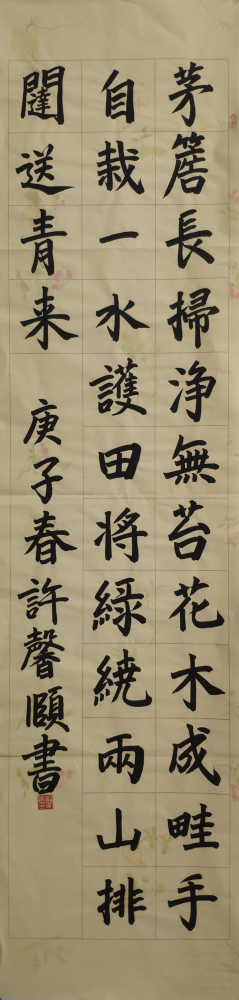 茅簷長掃淨無苔花木成畦手
自栽一水護田将綠繞兩山排
闥送青来
庚子春許馨頤書